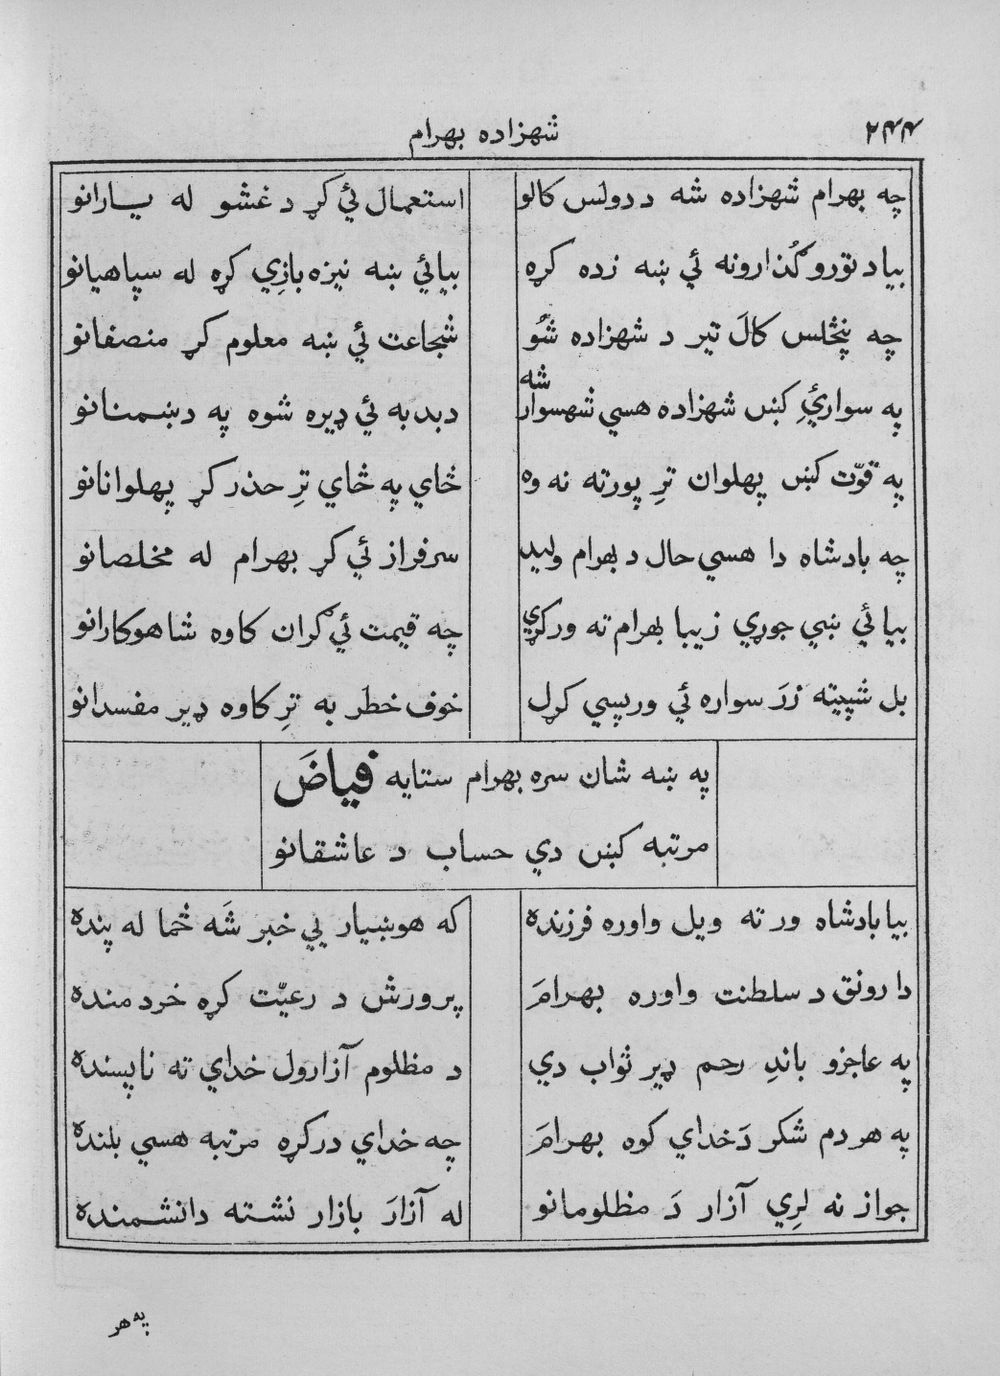 ۲۴۴ شهزاده بهرام
چه بهرام شهزاده شه د دولس کالو استعمال ئي کړ د غشو له یارانو
بیا د تورو ګذارونه ئي ښه زده کړه بیائي ښه نیزه بازي کړه له سپاهیانو
چه پنځلس کال تیر د شهزاده شو شجاعت ئي ښه معلوم کړ منصفانو
په سوارئ کښ شهزاده هسي شهسوار شه دبدبه ئي ډیره شوه په دښمنانو
په قوّت کښ پهلوان تر پورته نه وه ځاي په ځاي تر حذر کړ پهلوانانو
چه بادشاه دا هسي حال د بهرام ولید سرفراز ئي کړ بهرام له مخلصانو
بیائي ښي جوړي زیبا بهرام ته ورکړي چه قیمت ئي ګران کاوه شاهوکارانو
بل شپیته زرَ سواره ئي ورپسي کړل خوف خطر به تر کاوه ډیر مفسدانو
په ښه شان سره بهرام ستایه فیاضَ
مرتبه کښ دي حساب د عاشقانو
بیا بادشاه ورته ویل واوره فرزنده که هوښیار یي خبر شَه ځما له پنده
دا رونق د سلطنت واوره بهرامَ پرورش د رعیّت کړه خردمنده
په عاجزو باندِ رحم ډیر ثواب دي د مظلوم آزارول خداي ته ناپسنده
په هر دم شکر دَ خداي کوه بهرامَ چه خداي درکړه مرتبه هسي بلنده
جواز نه لري آزار دَ مظلومانو له آزارَ بازار نشته دانشمنده
په هر